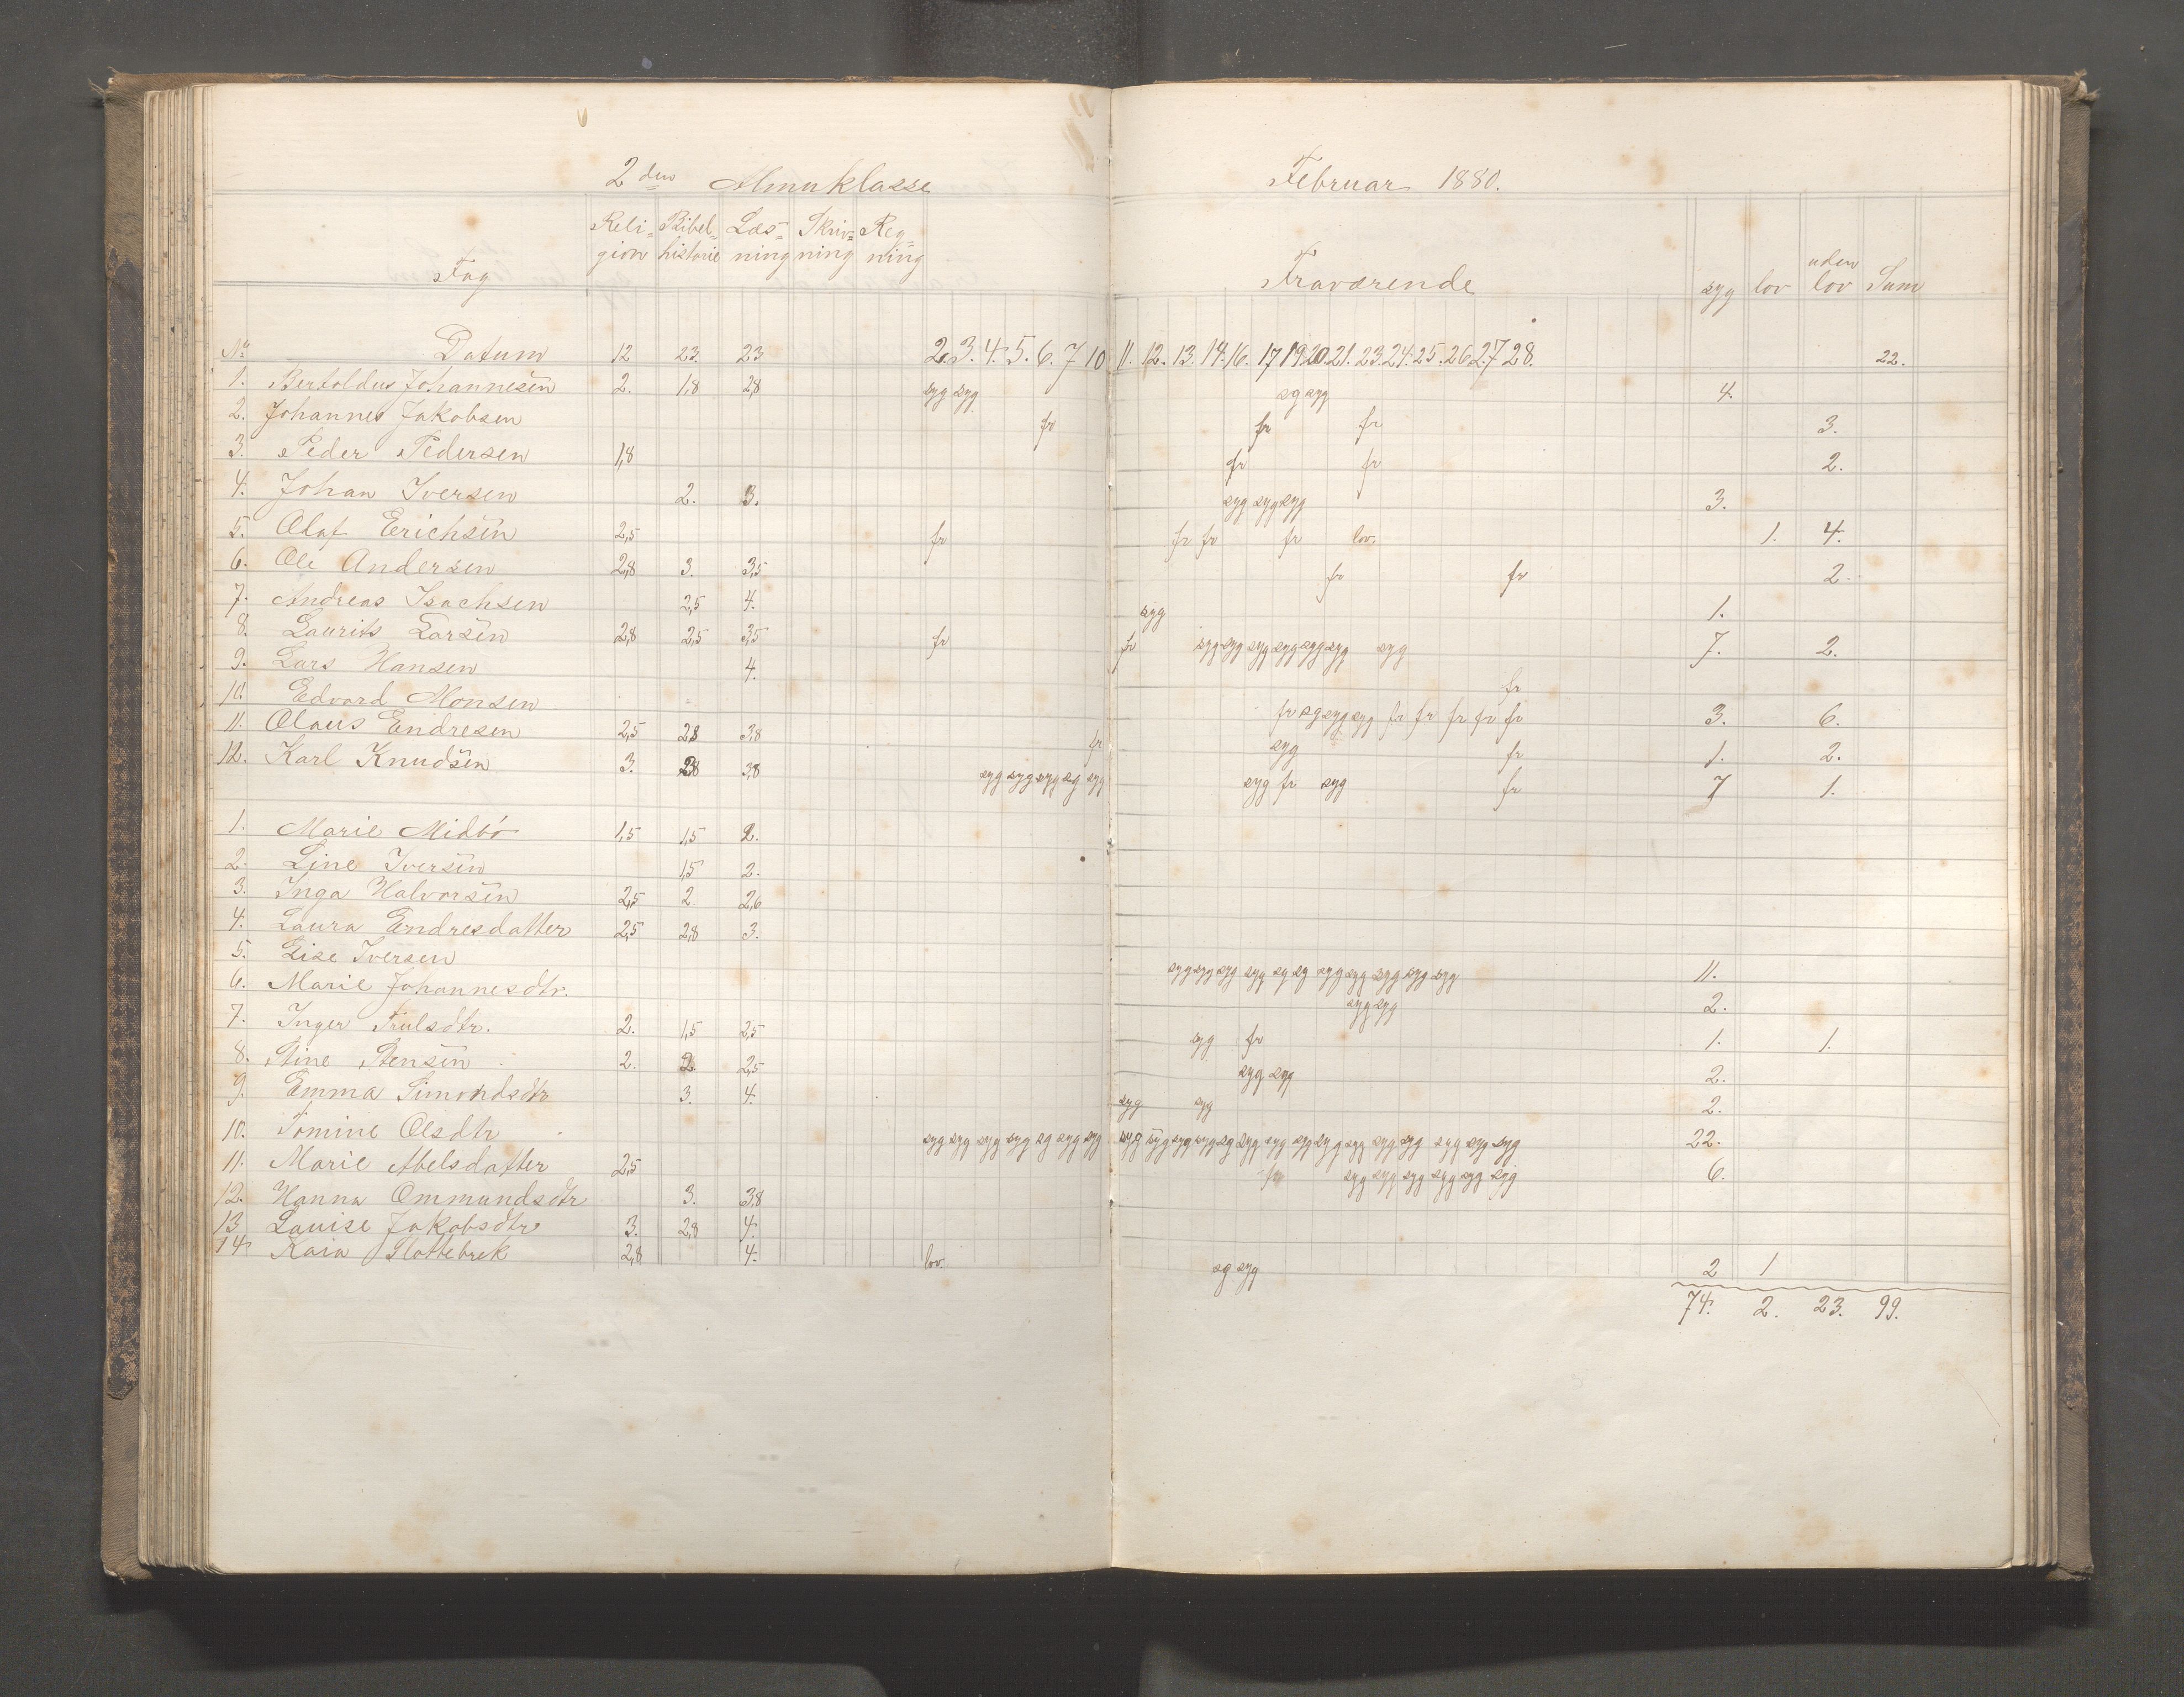 2den Almuklasse
Februar 1880.
Fag Reli= Bibel= Læs= Skriv= Reg=
gion historie ning ning ning
Fraværende syg lov uden lov Sum
No Datum 12 23. 23 2. 3. 4. 5. 6. 7 10 11. 12. 13. 14. 16. 17 19. 20. 21. 23. 24. 25. 26. 27 28. 22.
1. Bertoldus Johannesen 2. 1,8 2,8 syg syg sg syg 4.
2. Johannes Jakobsen fr fr fr 3.
3. Peder Pedersen 1,8 fr fr 2.
4. Johan Iversen 2. 3. syg syg syg 3.
5. Olaf Erichsen 2,5 fr fr fr fr lov. 1. 4.
6. Ole Andersen 2,8 3. 3,5 fr fr 2.
7. Andreas Isachsen 2,5 4. syg 1.
8. Laurits Larsen 2,8 2,5 3,5 fr fr syg syg syg syg syg syg syg 7. 2.
9. Lars Hansen 4. fr
10. Edvard Monsen fr sg syg syg fr fr fr fr fr 3. 6.
11. Olaus Endresen 2,5 2,8 3,8 fr syg fr 1. 2.
12. Karl Knudsen 3. 2,8 3,8 syg syg syg sg syg syg fr syg fr 7 1.
1. Marie Midbö 1,5 1,5 2.
2. Line Iversen 1,5 2.
3. Inga Halvorsen 2,5 2 2,6
4. Laura Endresdatter 2,5 2,8 3.
5. Lise Iversen syg syg syg syg sg sg syg syg syg syg syg 11.
6. Marie Johannesdtr. syg syg 2.
7. Inger Trulsdtr. 2. 1,5 2,5 syg fr 1. 1.
8. Stine Stensen 2. 2. 2,5 syg syg 2.
9. Emma Simondsdtr 3. 4. syg syg 2.
10. Tomine Olsdtr syg syg syg syg sg syg syg syg syg syg syg sg syg syg syg syg syg syg syg syg syg syg 22.
11. Marie Abelsdatter 2,5 fr syg syg syg syg syg syg 6.
12. Hanna Ommundsdtr 3. 3,8
13 Louise Jakobsdtr 3. 2,8 4.
14 Kaia Slottebrek 2,8 4. lov. sg syg 2 1
74. 2. 23. 99.